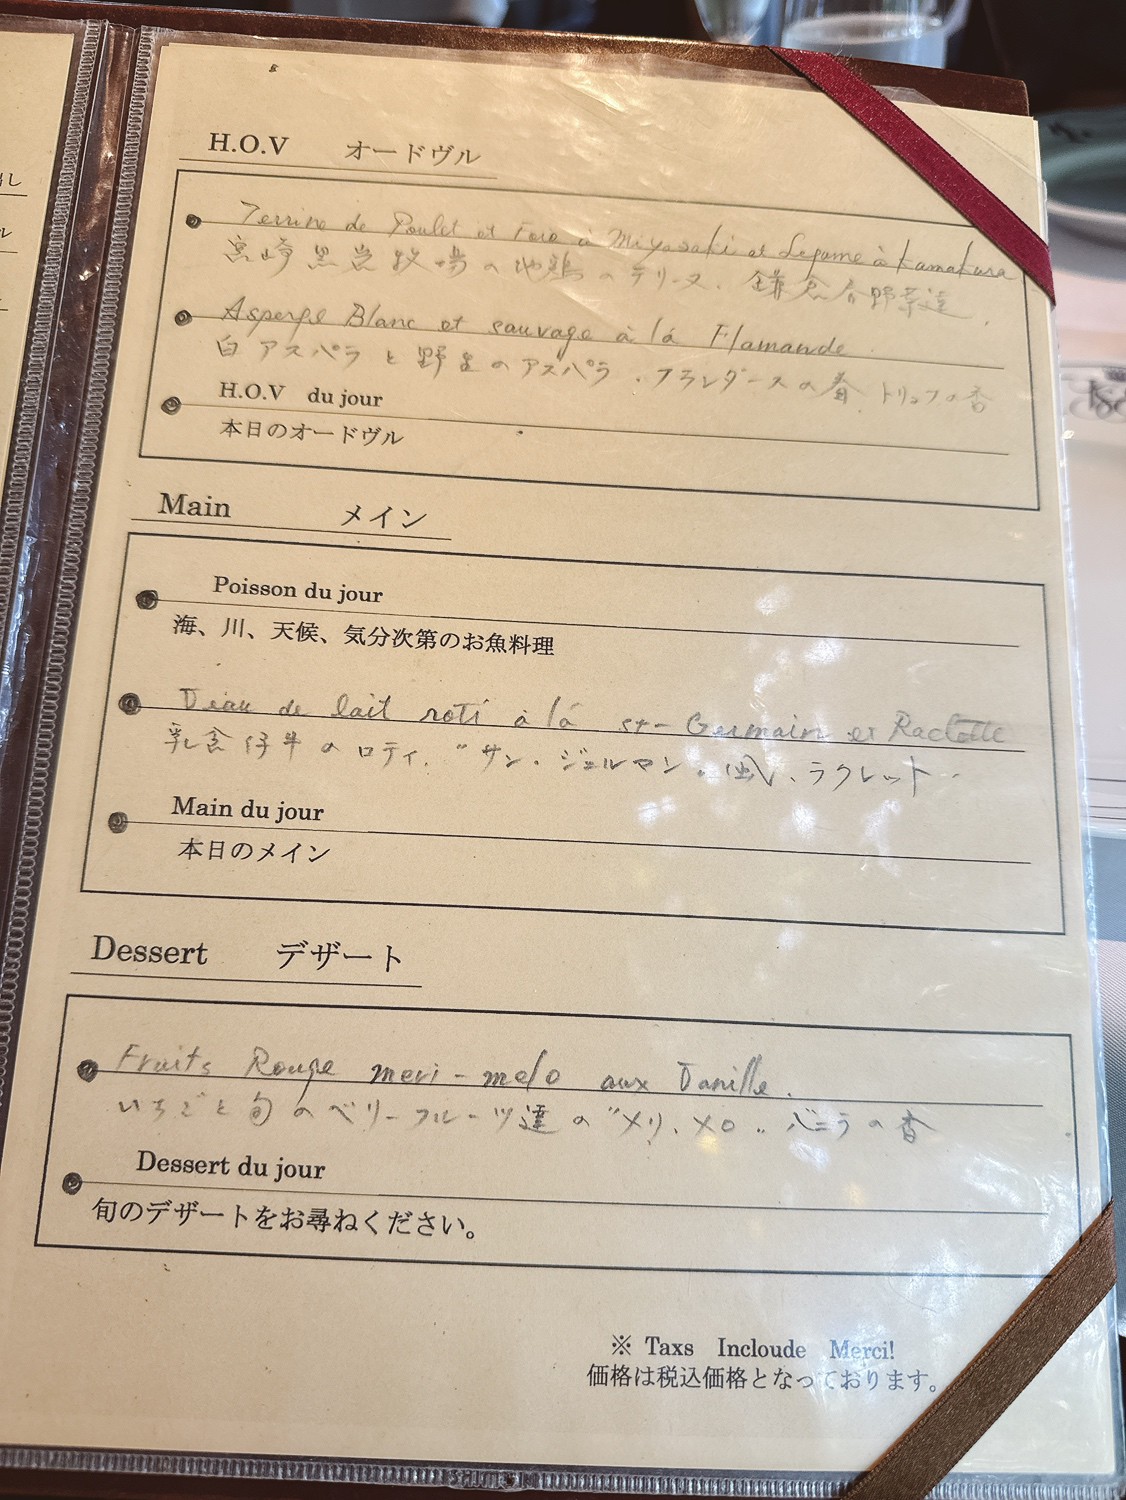 H.O.V オードヴル
Terrine de Poulet et Foie à Miyasaki et Legume à Kamakura
宮崎黒岩牧場の地鶏のテリーヌ、鎌倉合野菜達、
Asperge Blanc et sauvage à lá Flamande.
白アスパラと野生のアスパラ、フランダースの春、トリュフの香
H.O.V du jour
本日のオードヴル
Main メイン
Poisson du jour
海、川、天候、気分次第のお魚料理
Veau de lait roti à lá st-Germain et Raclette
乳含仔牛のロティ、"サン・ジェルマン・風、ラクレット..
Main du jour
本日のメイン
Dessert デザート
Fruits Rouge meri-melo aux Vanille.
いちごと旬のベリーフルーツ達の"メリ、メロ" バニラの香
Dessert du jour
旬のデザートをお尋ねください。
※ Taxs Incloude Merci!
価格は税込価格となっております。